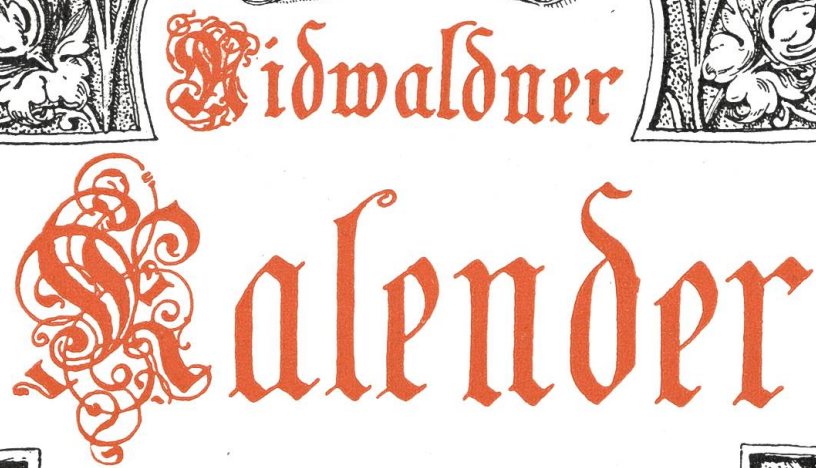 Nidwaldner
Kalender